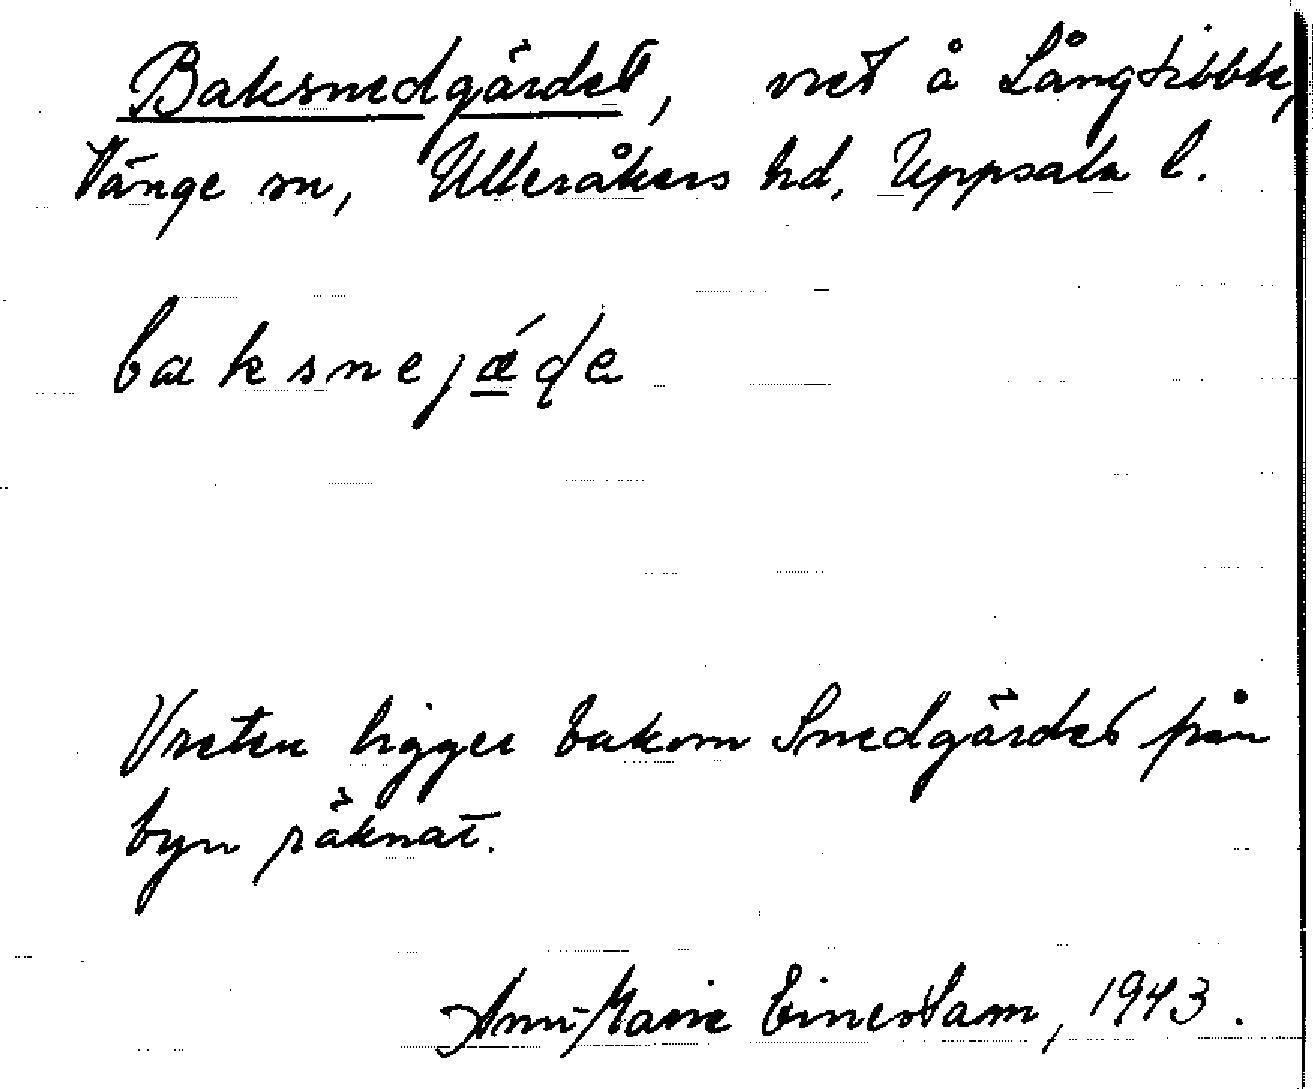 Baksnedgärdet, vret å Långtibble,
Vänge sn, Ulleråkers hd, Uppsala l.
baksnejǽde
Vreten ligger bakom Snedgärdet från
byn räknat.
Ann-Marie Einerstam, 1943.